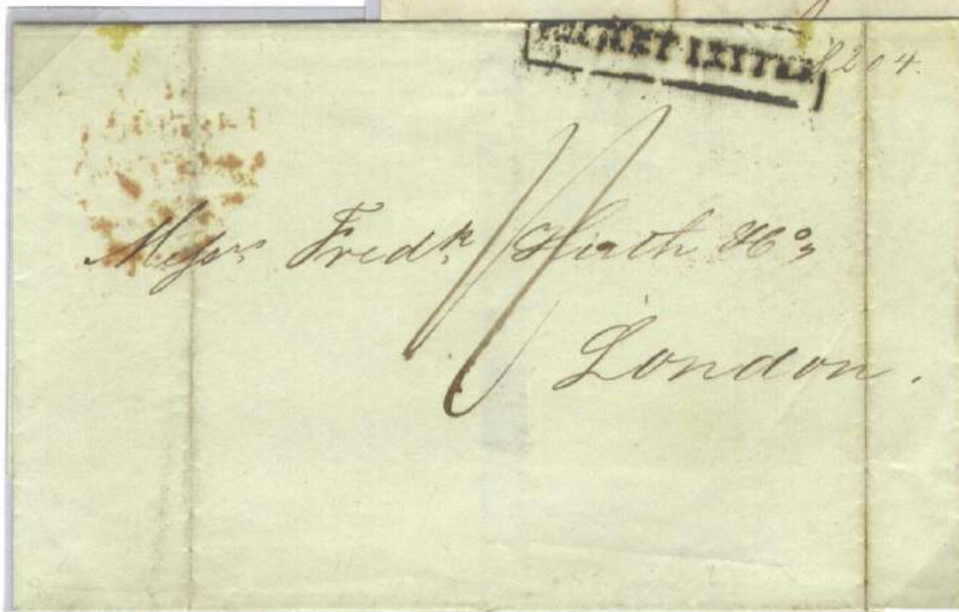 PACKET LETTER
8204.
Messrs Fredk Huth & Co
London.